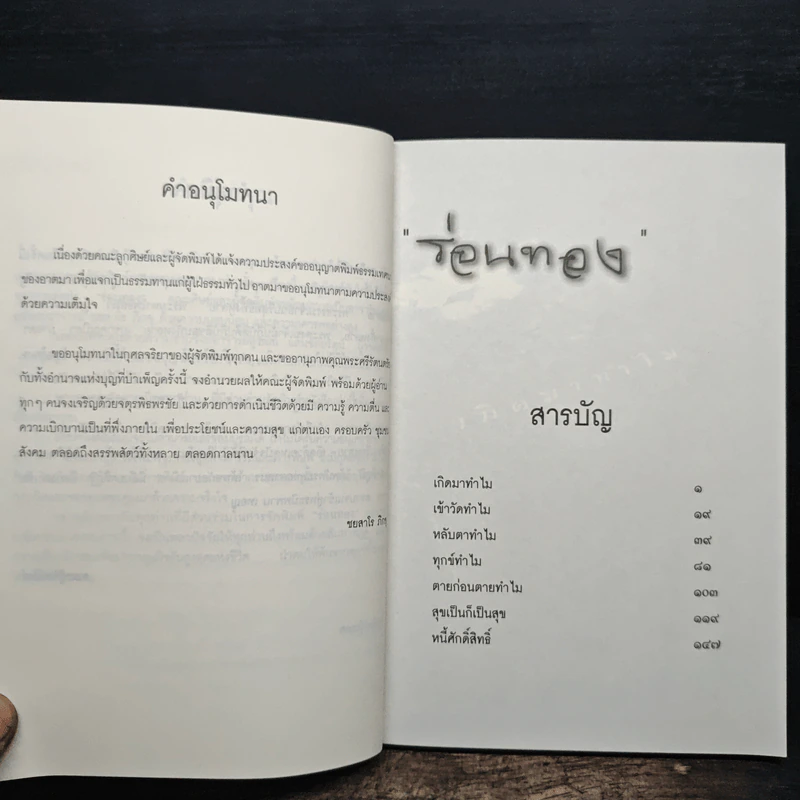 คำอนุโมทนา
เนื่องด้วยคณะลูกศิษย์และผู้จัดพิมพ์ได้แจ้งความประสงค์ขออนุญาตพิมพ์ธรรมเทศนา
ของอาตมา เพื่อแจกเป็นธรรมทานแก่ผู้ใฝ่ธรรมทั่วไป อาตมาขออนุโมทนาตามความประสงค์
ด้วยความเต็มใจ
ขออนุโมทนาในกุศลจริยาของผู้จัดพิมพ์ทุกคน และขออานุภาพคุณพระศรีรัตนตรัย
กับทั้งอำนาจแห่งบุญที่บำเพ็ญครั้งนี้ จงอำนวยผลให้คณะผู้จัดพิมพ์ พร้อมด้วยผู้อ่าน
ทุกๆ คนจงเจริญด้วยจตุรพิธพรชัย และด้วยการดำเนินชีวิตด้วยมี ความรู้ ความตื่น และ
ความเบิกบานเป็นที่พึ่งภายใน เพื่อประโยชน์และความสุข แก่ตนเอง ครอบครัว ชุมชน
สังคม ตลอดถึงสรรพสัตว์ทั้งหลาย ตลอดกาลนาน
ชยสาโร ภิกขุ
"ร่อนทอง"
สารบัญ
เกิดมาทำไม ๑
เข้าวัดทำไม ๑๙
หลับตาทำไม ๓๙
ทุกข์ทำไม ๘๑
ตายก่อนตายทำไม ๑๐๓
สุขเป็นก็เป็นสุข ๑๑๙
หนี้ศักดิ์สิทธิ์ ๑๔๗